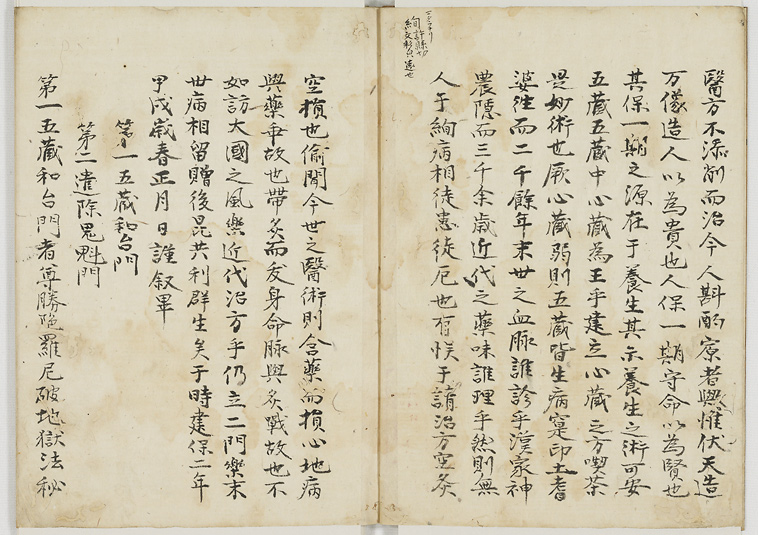 醫方不添削而治今人斟酌寡者與惟伏天造
万像造人以為貴也人保一期守命以為賢也
其保一期之源在于養生其示養生之術可安
五蔵五蔵中心蔵為王乎建立心蔵之方喫茶
是妙術也厥心蔵弱則五蔵皆生病寔印土耆
婆往而二千餘年末世之血脉誰診乎漢家神
農隠而三千余歳近代之藥味誰理乎然則無
人于詢病相徒患徒厄也有悮于請治方空灸
空損也偷聞今世之醫術則含藥而損心地病
與藥乖故也帶灸而夭身命脉與灸戰故也不
如訪大國之風示近代治方乎仍立二門示末
世病相留贈後昆共利群生矣于時建保二年
甲戌歳春正月日謹叙畢
第一五蔵和合門
第二遣除鬼魅門
第一五蔵和合門者尊勝陀羅尼破地獄法秘